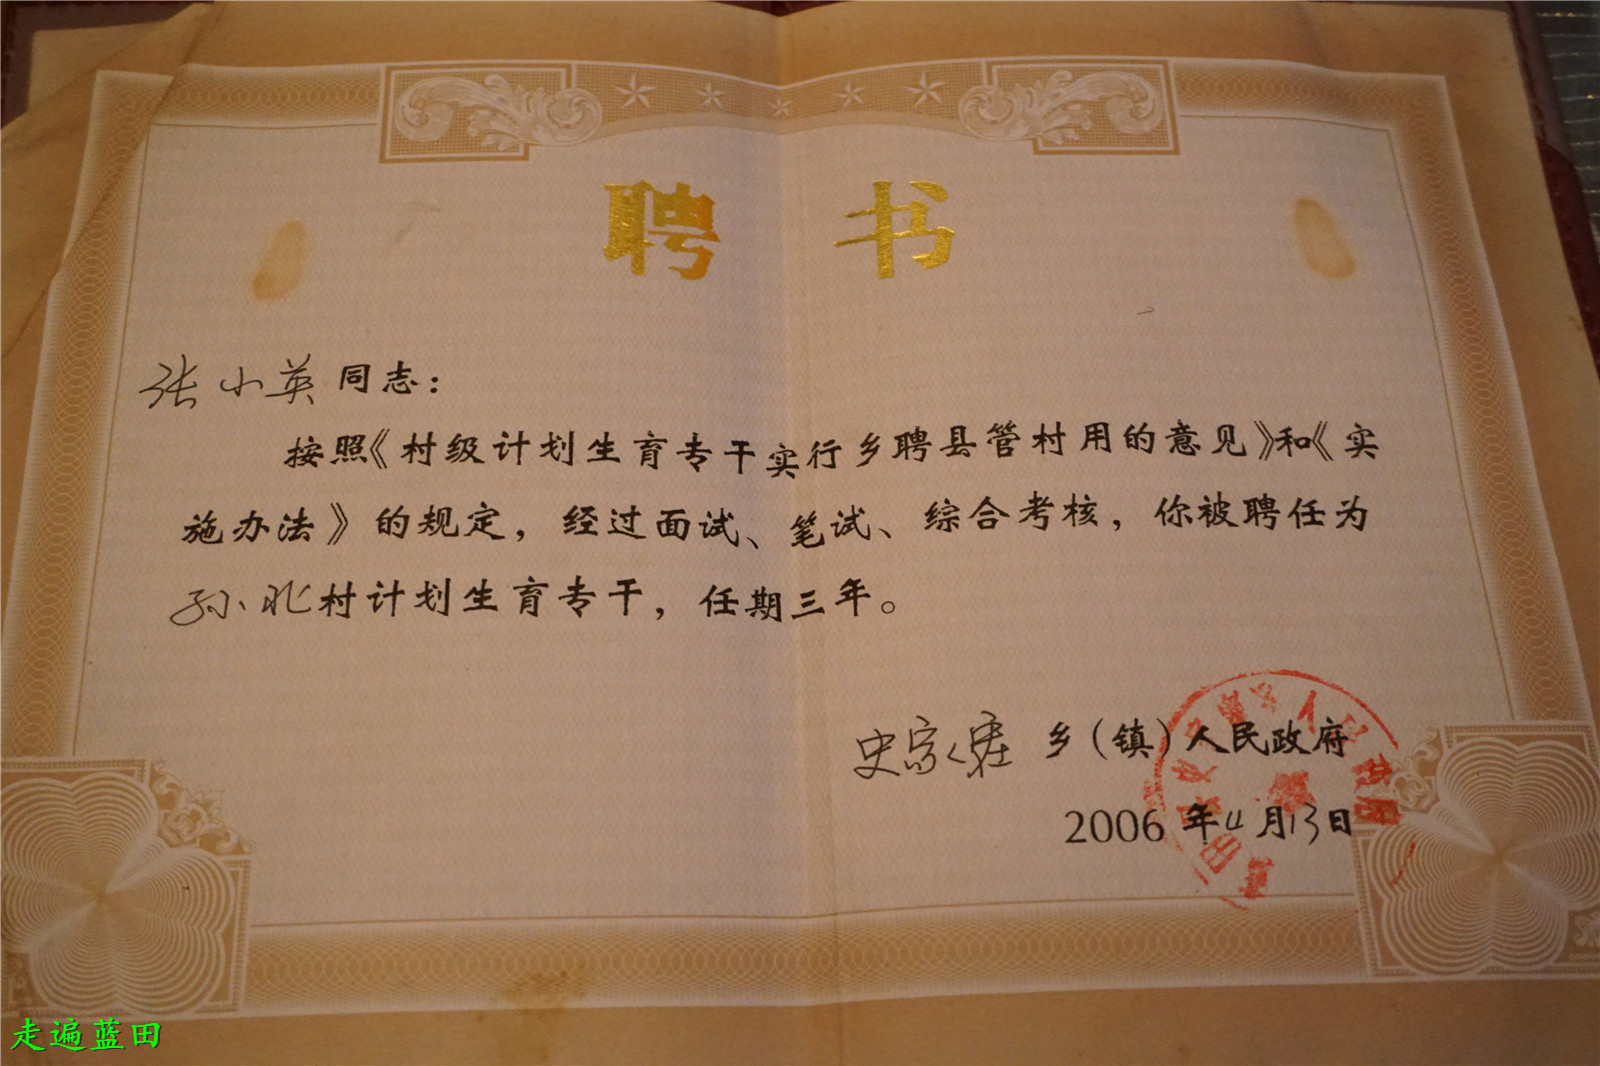 聘书
张小英同志：
按照《村级计划生育专干实行乡聘县管村用的意见》和《实
施办法》的规定，经过面试、笔试、综合考核，你被聘任为
孙北村计划生育专干，任期三年。
史家寨 乡（镇）人民政府
2006年4月13日
走遍蓝田